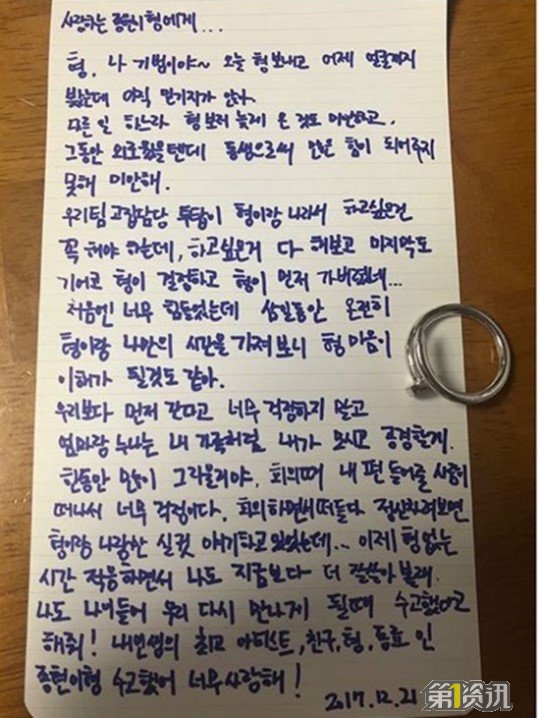 사랑하는 종현이 형에게...
형. 나 기범이야~ 오늘 형 보내고 어제 얼굴까지
봤는데 아직 믿기지가 않아.
다른 일 하느라 형 보러 늦게 온 것도 미안하고,
그동안 외로웠을텐데 동생으로써 많은 힘이 되어주지
못해 미안해.
우리팀 고집담당 투탑이 형이랑 나라서 하고싶은건
꼭 해야 하는데, 하고싶은거 다 해보고 마지막도
기어코 형이 결정하고 형이 먼저 가버렸네...
처음엔 너무 힘들었는데 삼일동안 온전히
형이랑 나만의 시간을 가져보니 형 마음이
이해가 될것도 같아.
우리보다 먼저 간다고 너무 걱정하지 말고
엄마랑 누나는 내 가족처럼 내가 모시고 공경할게.
한동안 많이 그리울거야. 회의때 내 편 들어줄 사람이
떠나서 너무 걱정이다. 회의하면서 떠들다 정신차려보면
형이랑 나랑만 실컷 얘기하고 있었는데... 이제 형없는
시간 적응하면서 나도 지금보다 더 잘 참아볼래.
나도 나이들어 우리 다시 만나게 될때 수고했다고
해줘! 내 인생의 최고 아티스트, 친구, 형, 동료 인
종현이형 수고했어 너무 사랑해!
2017.12.21
第1资讯